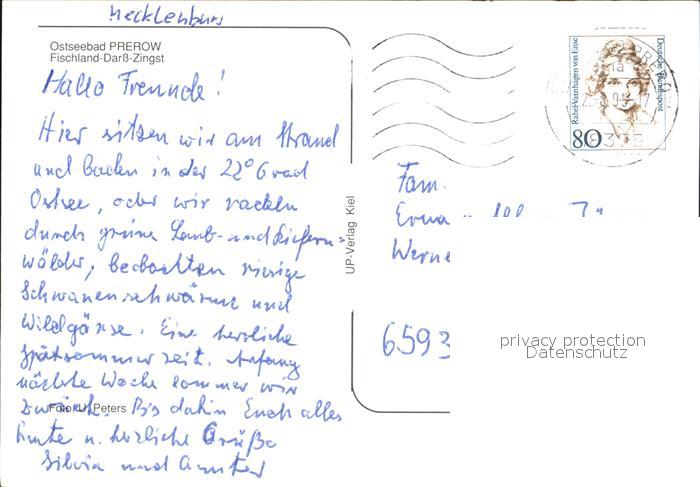 Mecklenburg
Ostseebad PREROW
Fischland-Darß-Zingst
Hallo Freunde!
Hier sitzen wir am Strand
und baden in der 22° Grad
Ostsee, oder wir radeln
durch grüne Laub- und Kiefern-
wälder, beobachten riesige
Schwanenschwärme und
Wildgänse. Eine herrliche
Spätsommerzeit. Anfang
nächste Woche kommen wir
zurück. Bis dahin Euch alles
Gute u. herzliche Grüße
Silvia und
Foto: U. Peters
UP-Verlag Kiel
Deutsche Bundespost
Rahel Varnhagen von Ense
80
Fam.
Erwa
Werne
6593
privacy protection
Datenschutz